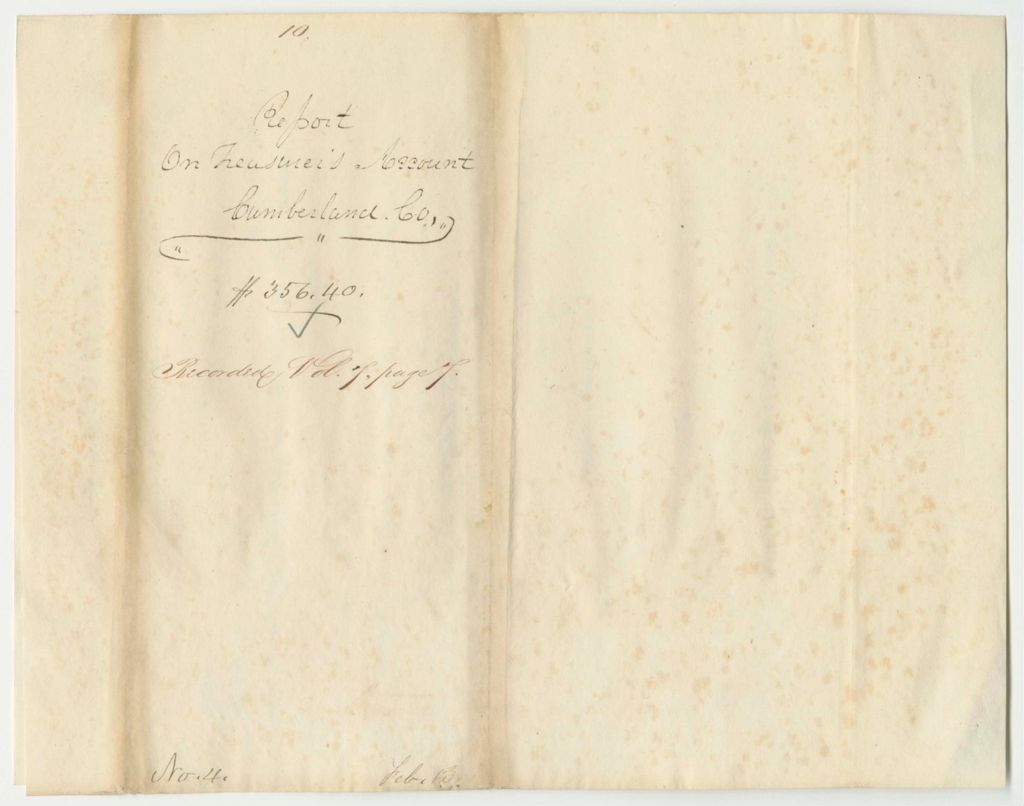 10.
Report
On Treasurer's Account
Cumberland. Co.,
$356.40.
Recorded, Vol. 7. page 7.
No. 4. Feb.